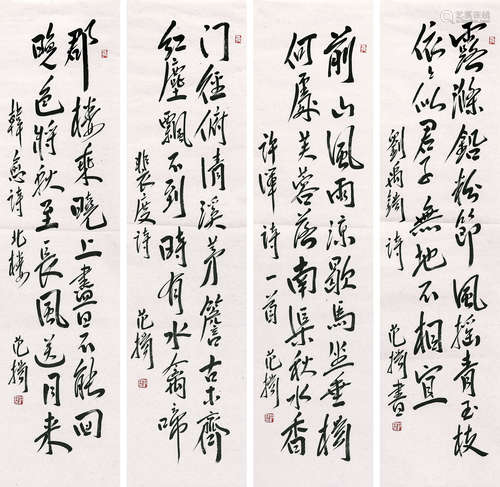 露滌鉛粉節風摇青玉枝
依依似君子無地不相宜
劉禹錫詩
范擕書
前山風雨涼歇馬坐垂楊
何處芙蓉落南渠秋水香
許渾詩一首
范擕
门徑俯清溪茅簷古木齊
红塵飄不到時有水禽啼
裴度詩
范擕
郡樓乘晚上盡日不能回
晚色將秋至長風送月来
韓愈詩北樓
范擕